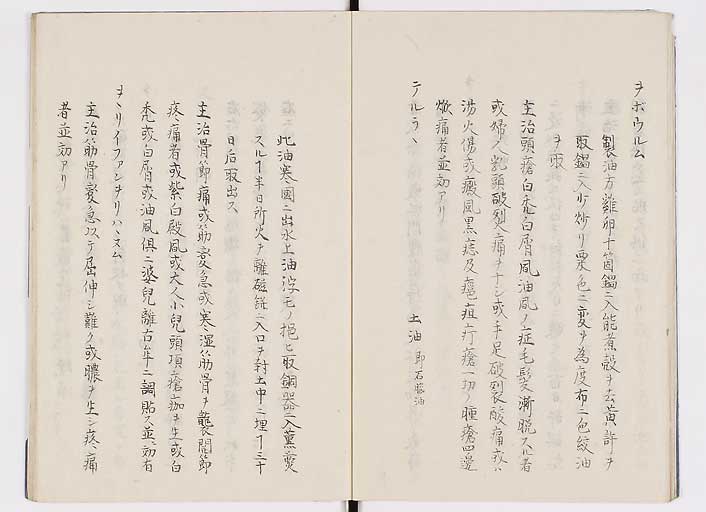 ヲボウルム
製油方雞卵十箇鍋ニ入能煮殻ヲ去黄許ヲ
取鍋ニ入少炒リ栗色ニ変ヲ為度布ニ包絞油
ヲ取
主治頭瘡白禿白屑風油風ノ症毛髪漸脱スル者
或婦人乳頭破裂焮痛ヲナシ或手足破裂酸痛或ハ
湯火傷或癜風黒痣及疽疔瘡一切ノ腫瘡四邊
焮痛者並効アリ
テルラヽ 土油 即石脳油
此油寒國ニ出水上油浮モノ挹ヒ取銅器ニ入薫
スルヿ半日所火ヲ離磁ニ入口ヲ封土中ニ埋ヿ三十
日后取出ス
主治骨節痛或筋急或寒湿筋骨ヲ襲関節
疼痛者或紫白殿風或大人小兒頭項ニ瘡痂ヲ生或白
禿或白屑或油風俱ニ婆兒離古年ニ調貼ス並効有
ヲヽリイフアンヲリハヽスム
主治筋骨急以テ屈伸シ難ク或膿ヲ生シ疼痛
者並効アリ